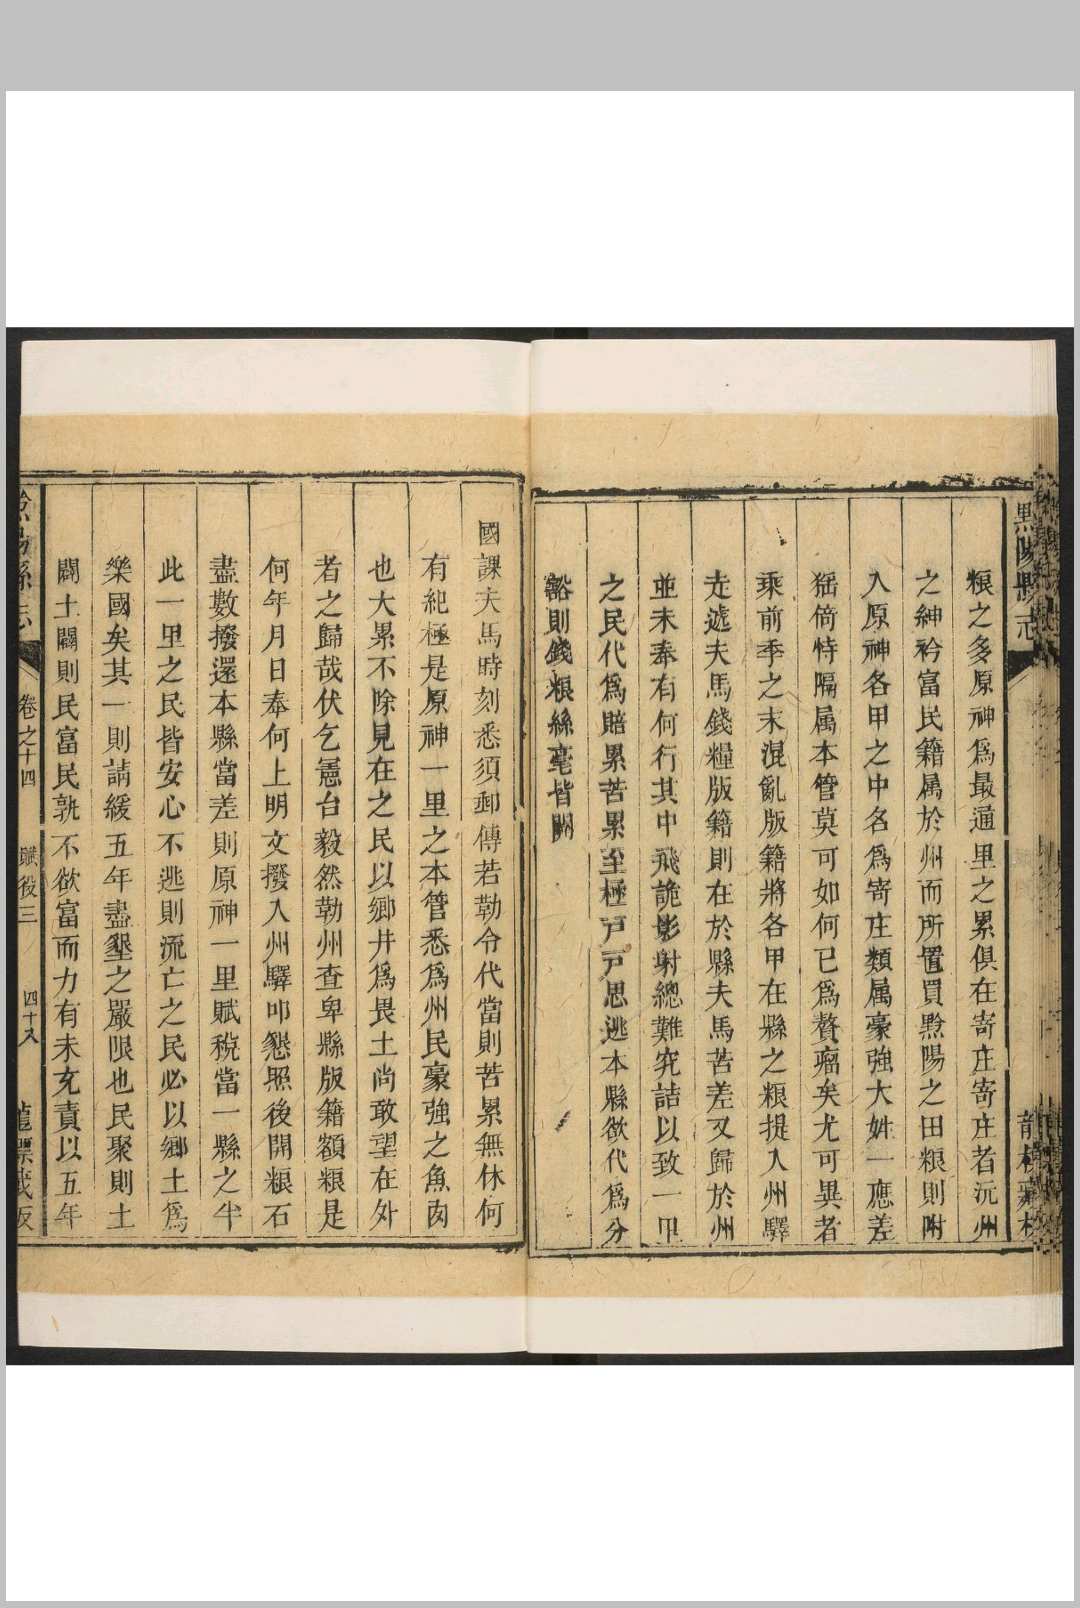 黔陽縣志
粮之多原神爲最通里之累俱在寄庄寄庄者沅州
之紳衿富民籍属於州而所置買黔陽之田粮則附
入原神各甲之中名爲寄庄類属豪強大姓一應差
徭倚恃隔属本管莫可如何已爲贅瘤矣尤可異者
乘前季之末混亂版籍將各甲在縣之粮提入州驛
走遞夫馬錢糧版籍則在於縣夫馬苦差又歸於州
並未奉有何行其中飛詭影射總難究詰以致一甲
之民代爲賠累苦累至極戸戸思逃本縣欲代爲分
豁則錢粮絲毫皆關
國課夫馬時刻悉須郵傳若勒令代當則苦累無休何
有紀極是原神一里之本管悉爲州民豪強之魚肉
也大累不除見在之民以鄉井爲畏土尚敢望在外
者之歸哉伏乞憲台毅然勒州查卑縣版籍額粮是
何年月日奉何上明文撥入州驛叩懇照後開粮石
盡數撥還本縣當差則原神一里賦稅當一縣之半
此一里之民皆安心不逃則流亡之民必以鄉土爲
樂國矣其一則請緩五年盡墾之嚴限也民聚則土
闢土闢則民富民孰不欲富而力有未充責以五年
黔陽縣志 卷之十四 賦役三 四十八 龍標藏板